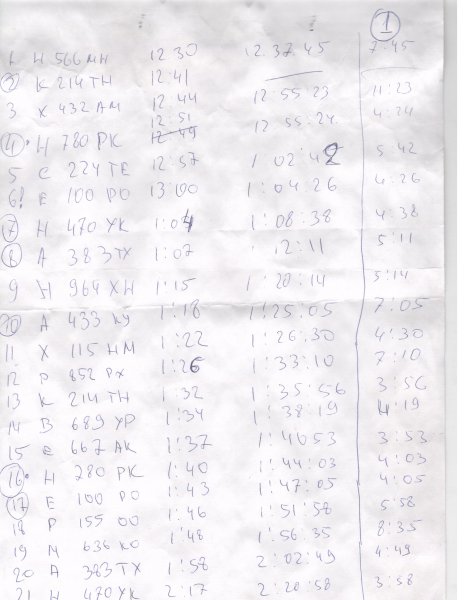 1
1 Н 566 МН 12:30 12.37.45 7:45
2 К 214 ТН 12:41
3 Х 432 АМ 12:44 12:55:23 11:23
12:51 12 55:24 4:24
4 Н 780 РК 12:49
5 С 224 ТЕ 12:57 1:02:42 5:42
6! Е 100 РО 13:00 1:04:26 4:26
7 Н 470 УК 1:04 1:08:38 4:38
8 А 383 ТХ 1:07 12:11 5:11
9 Н 964 ХН 1:15 1:20:14 5:14
10 А 433 КУ 1:18 1:25:05 7:05
11 Х 115 НМ 1:22 1:26:30 4:30
12 Р 852 РХ 1:26 1:33:10 7:10
13 К 214 ТН 1:32 1:35:56 3:56
14 В 689 УР 1:34 1:38:19 4:19
15 е 667 АК 1:37 1:40 53 3:53
16 Н 280 РК 1:40 1:44:03 4:03
17 Е 100 РО 1:43 1:47:05 4:05
18 Р 155 ОО 1:46 1:51:58 5:58
19 М 636 КО 1:48 1:56:35 8:35
20 А 383 ТХ 1:58 2:02:49 4:49
21 Н 470 УК 2:17 2:20:58 3:58